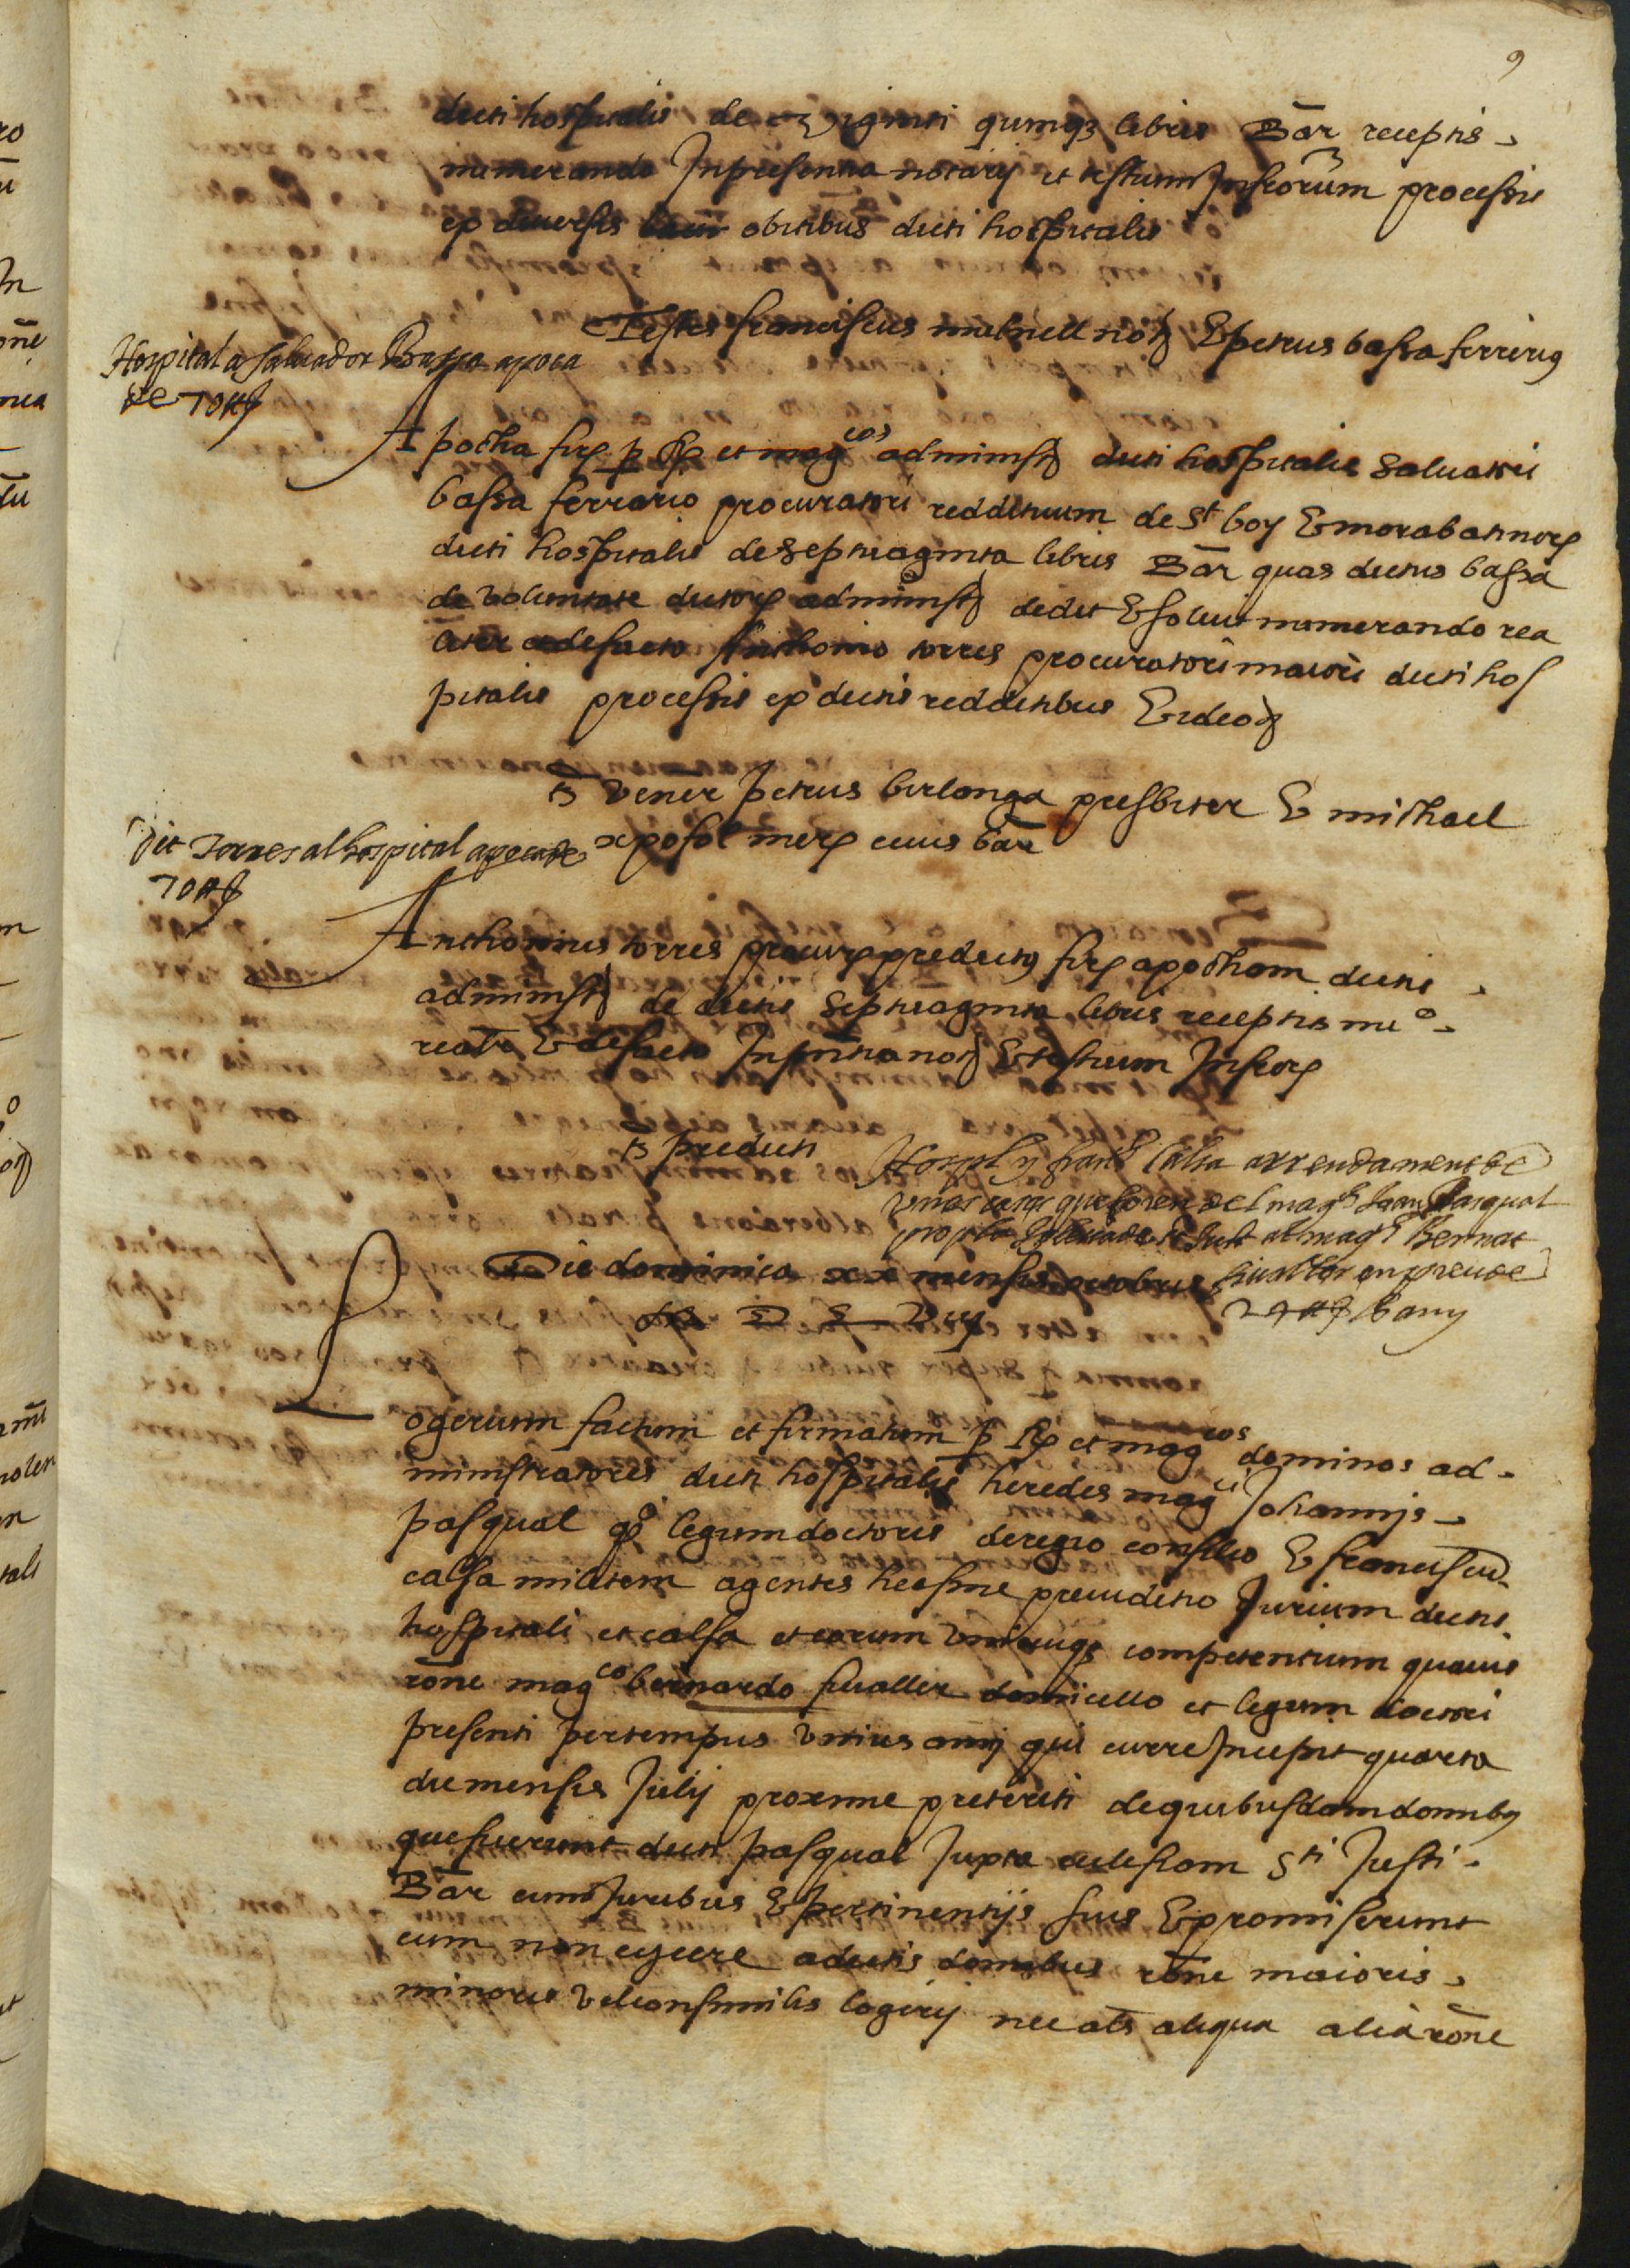 9
dicti hospitalis de viginti quinqz libris Bar receptis
numerando In presentia notarij et testium Infrorum processis
ex diversis obitibus dicti hospitalis
Testes franciscus mulnell not & petrus bassa ferrerius
Hospital a Salvador Bassa apoca
de 70 ll
Apocha fir p R et magcos administ dicti hospitalis Salvatori
bassa ferrario procuratori reddituum de St boy & morabatinor
dicti hospitalis de septuaginta libris Bar quas dictus bassa
de voluntate dictor administ dedit & solvit numerando rea
liter et de facto Anthonio torres procuratori maiori dicti hos
pitalis processis ex dictis redditibus & ideo
ts vener petrus birlonga presbiter & michael
xpofol mer civis bar
dit Torres al hospital apoca de
70 ll
Anthonius torres procur predictus fir apocham dictis
administ de dictis septuaginta libris receptis nuo
realr & de facto In pntia not & testium Infror
ts predicti
Hospl y franch Calsa arrendament de
unas cases que foren del magch Joan Pasqual
prop la de St Just al magch Bernat
sivaller en preu de
24 ll bany
Die dominica xx mensis octobris
Logerium factum et firmatum p R et magcos dominos ad
ministratores dicti hospitalis heredes magci Johannis
pasqual qo legum doctoris de regio consilio & franciscum
calsa militem agentes hec sine preiuditio Jurium dictis
hospitali et calsa et eorum unicuiqz competentium quavis
rone magco bernardo sivaller domicello et legum doctori
presenti per tempus unius anni qui currere Incepit quarta
die mensis Julij proxime preteriti de quibusdam domibus
que fuerunt dicti pasqual Juxta ecclesiam Sti Justi
Bar cum Juribus & pertinentijs suis & promiserunt
eum non eijcere a dictis domibus rone maioris
minoris vel consimilis logerij nec als aliqua alia rone